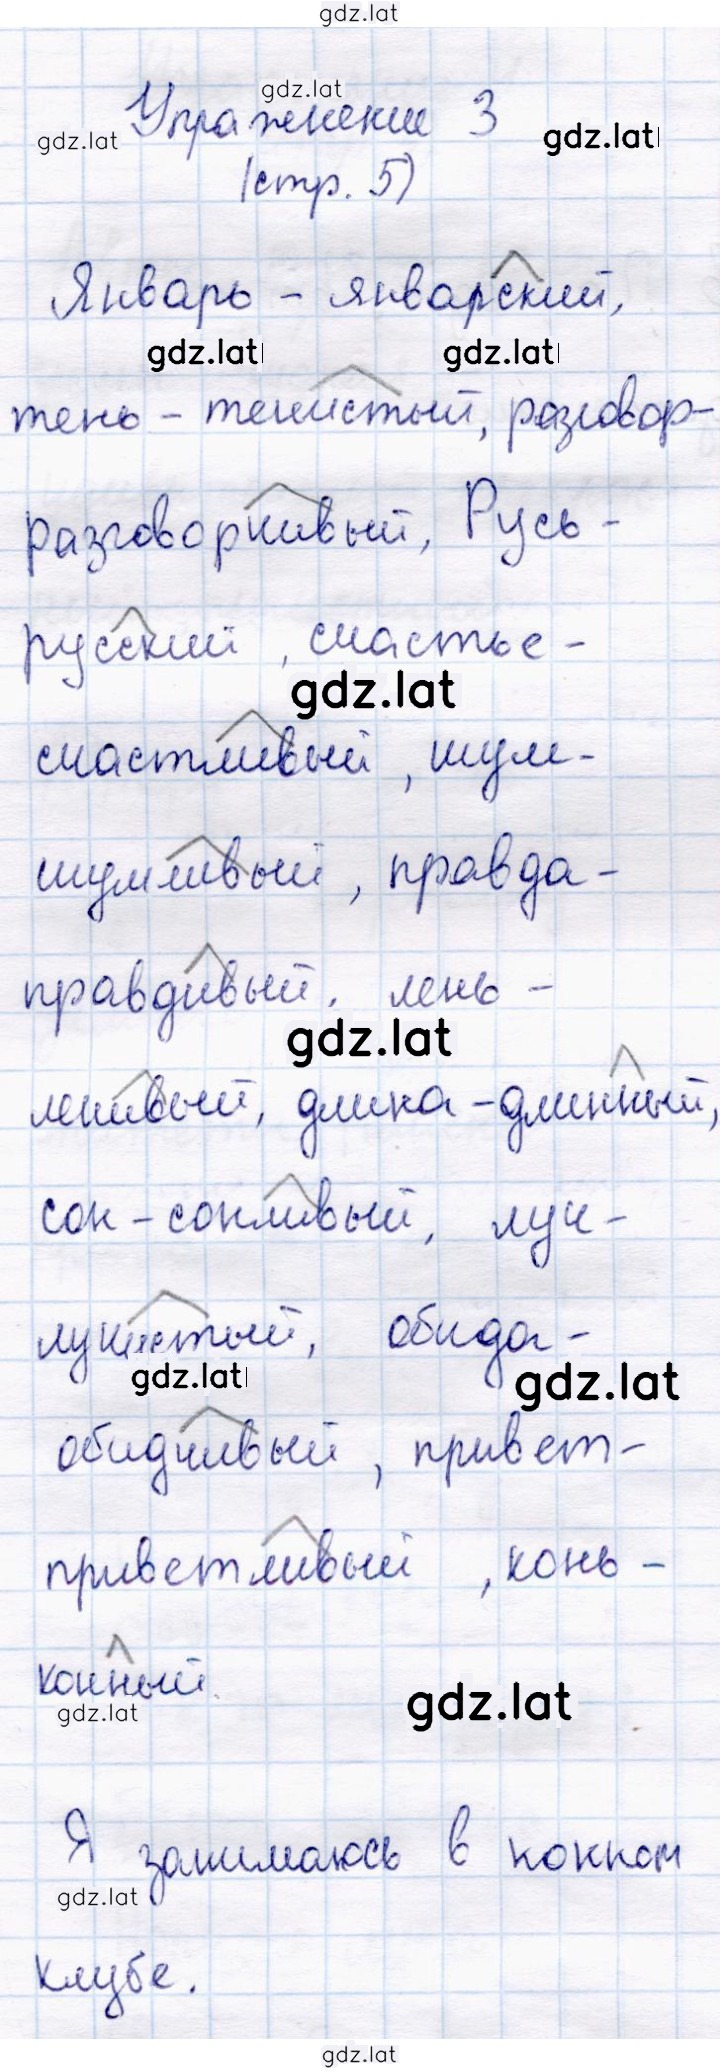 gdz.lat
gdz.lat
Упражнение 3
gdz.lat gdz.lat
(стр. 5)
Январь - январский,
gdz.lat gdz.lat
тень - тенистый, разговор-
разговорчивый, Русь-
русский, счастье-
gdz.lat
счастливый, шум-
шумливый, правда-
правдивый, лень-
gdz.lat
ленивый, длина-длинный,
сон-сонливый, луч-
лучистый, обида-
gdz.lat gdz.lat
обидчивый, привет-
приветливый, конь-
конный.
gdz.lat gdz.lat
Я занимаюсь в конном
gdz.lat
клубе.
gdz.lat